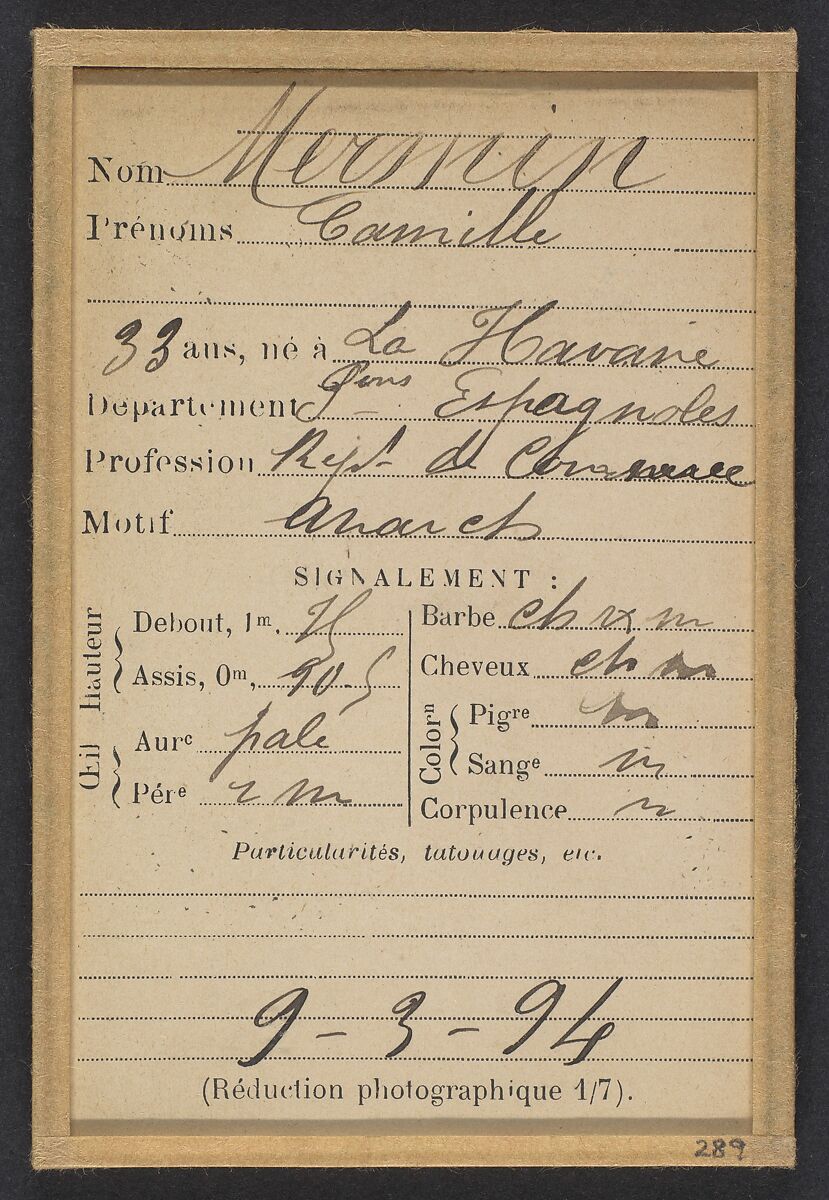 Nom Mermin
Prénoms Camille
33 ans, né à La Havane
Département Pons Espagnoles
Profession Rept de Commerce
Motif Anarch
SIGNALEMENT :
Hauteur
Debout, 1m. 75
Assis, 0m, 90.5
Œil
Aurc pale
Pére r m
Barbe ch rx m
Cheveux ch m
Colorn
Pigre m
Sange m
Corpulence
Particularités, tatouages, etc.
9-3-94
(Réduction photographique 1/7).
289